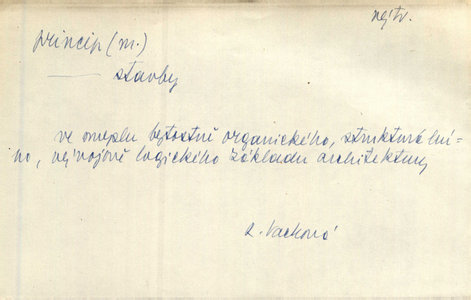 výtv.
princip (m.)
—— stavby
ve smyslu bytostně organického, strukturální=
ho, vývojově logického základu architektury
R. Vacková